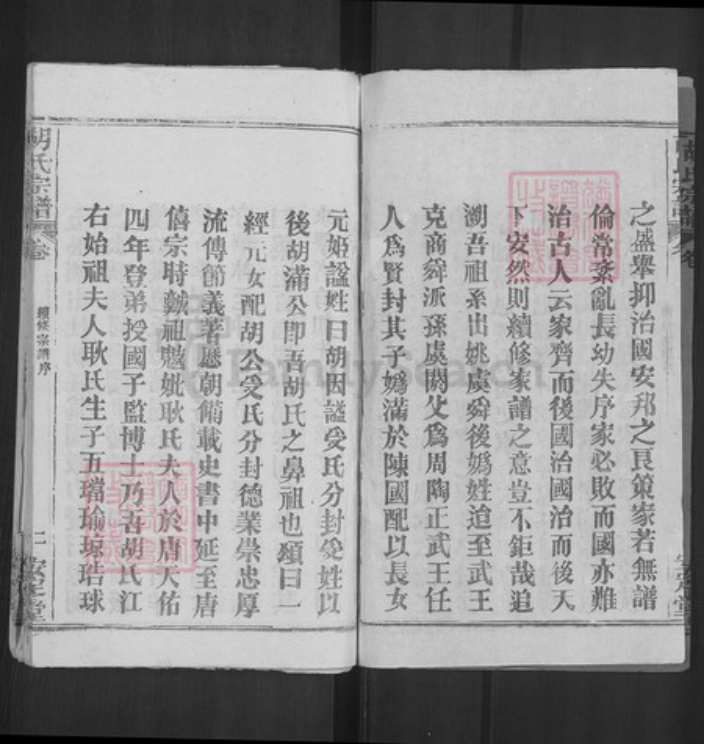 之盛舉抑治國安邦之良策家若無譜
倫常紊亂長幼失序家必敗而國亦難
治古人云家齊而後國治國治而後天
下安然則續修家譜之意豈不鉅哉追
溯吾祖系出姚虞舜後嬀姓迨至武王
克商舜派孫虞閼父爲周陶正武王任
人爲賢封其子嬀滿於陳國配以長女
元姬謚姓曰胡因謚受氏分封受姓以
後胡滿公即吾胡氏之鼻祖也頌曰一
經元女配胡公受氏分封德業崇忠厚
流傳節義著歷朝備載史書中延至唐
僖宗時藏祖妣耿氏夫人於唐天佑
四年登弟授國子監博士乃吾胡氏江
右始祖夫人耿氏生子五璫瑜琼珸球
胡氏宗譜
卷
續修宗譜序
二
安定堂
FamilySearch